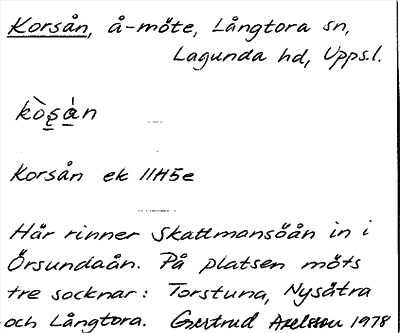 Korsån, å-möte, Långtora sn,
Lagunda hd, Upps.l.
kò̀şán
Korsån ek 11H5e
Här rinner Skattmansöån in i
Örsundaån. På platsen möts
tre socknar: Torstuna, Nysätra
och Långtora. Gertrud Axelsson 1978